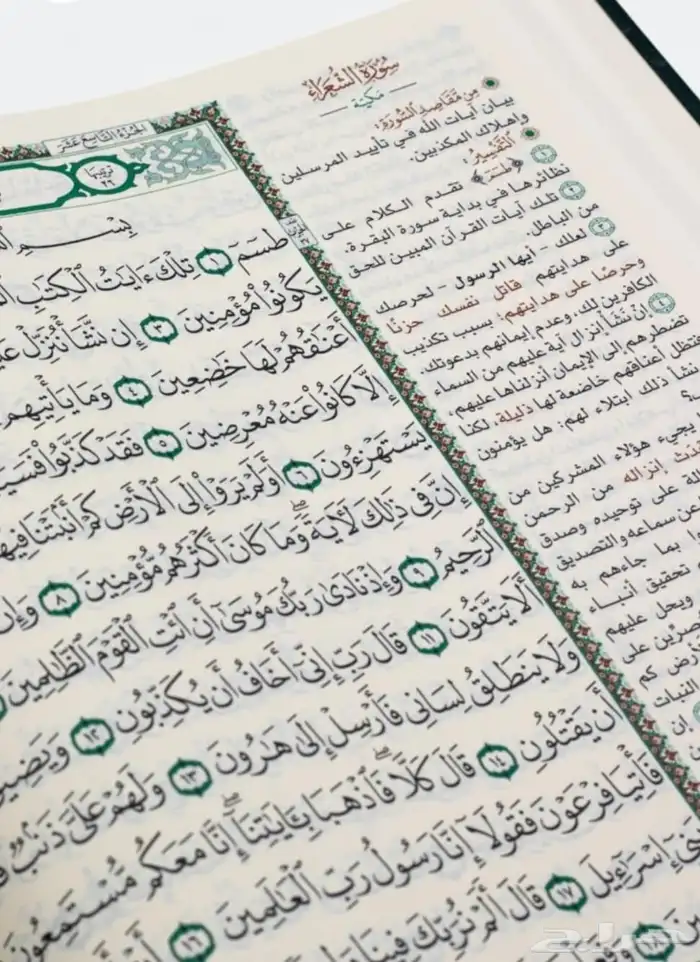 سُورَةُ الشُّعَرَاءِ
مَكِّيَّة
مِن مَّقَاصِدِ السُّورَةِ:
بيان آيات الله في تأييد المرسلين
وإهلاك المكذبين.
التَّفْسِيرُ:
﴿طسٓمٓ﴾ تقدم الكلام على
نظائرها في بداية سورة البقرة.
تلك آيات القرآن المبين للحق
من الباطل.
لعلك - أيها الرسول - لحرصك
على هدايتهم قاتل نفسك حزنًا
وحرصًا على هدايتهم؛ بسبب تكذيب
الكافرين لك، وعدم إيمانهم بدعوتك.
٤ إن نشأ إنزال آية عليهم من السماء
تضطرهم إلى الإيمان أنزلناها عليهم،
فتظل أعناقهم خاضعة لها ذليلة، لكنا
نشأ ذلك ابتلاء لهم: هل يؤمنون
يجيء هؤلاء المشركين من
إنزاله من الرحمن
على توحيده وصدق
سماعه والتصديق
بما جاءهم به
تحقيق أنباء
ويحل عليهم
على
كم
إن
الجزء التاسع عشر
بِسْمِ
طسٓمٓ ١ تِلْكَ ءَايَٰتُ ٱلْكِتَٰبِ
يَكُونُوا۟ مُؤْمِنِينَ ٣ إِن نَّشَأْ نُنَزِّلْ
أَعْنَٰقُهُمْ لَهَا خَٰضِعِينَ ٤ وَمَا يَأْتِيهِم
إِلَّا كَانُوا۟ عَنْهُ مُعْرِضِينَ ٥ فَقَدْ كَذَّبُوا۟
يَسْتَهْزِءُونَ ٦ أَوَلَمْ يَرَوْا۟ إِلَى ٱلْأَرْضِ كَمْ أَنۢبَتْنَا فِيهَا
إِنَّ فِى ذَٰلِكَ لَءَايَةً ۖ وَمَا كَانَ أَكْثَرُهُم مُّؤْمِنِينَ ٨ وَإِنَّ
ٱلرَّحِيمُ ٩ وَإِذْ نَادَىٰ رَبُّكَ مُوسَىٰٓ أَنِ ٱئْتِ ٱلْقَوْمَ ٱلظَّٰلِمِينَ
أَلَا يَتَّقُونَ ١١ قَالَ رَبِّ إِنِّىٓ أَخَافُ أَن يُكَذِّبُونِ ١٢ وَيَضِيقُ
وَلَا يَنطَلِقُ لِسَانِى فَأَرْسِلْ إِلَىٰ هَٰرُونَ ١٣ وَلَهُمْ عَلَىَّ ذَنۢبٌ
أَن يَقْتُلُونِ ١٤ قَالَ كَلَّا ۖ فَٱذْهَبَا بِـَٔايَٰتِنَآ ۖ إِنَّا مَعَكُم مُّسْتَمِعُونَ
فَأْتِيَا فِرْعَوْنَ فَقُولَآ إِنَّا رَسُولُ رَبِّ ٱلْعَٰلَمِينَ ١٦ أَنْ
إِسْرَٰٓءِيلَ ١٧ قَالَ أَلَمْ نُرَبِّكَ فِينَا
حراج